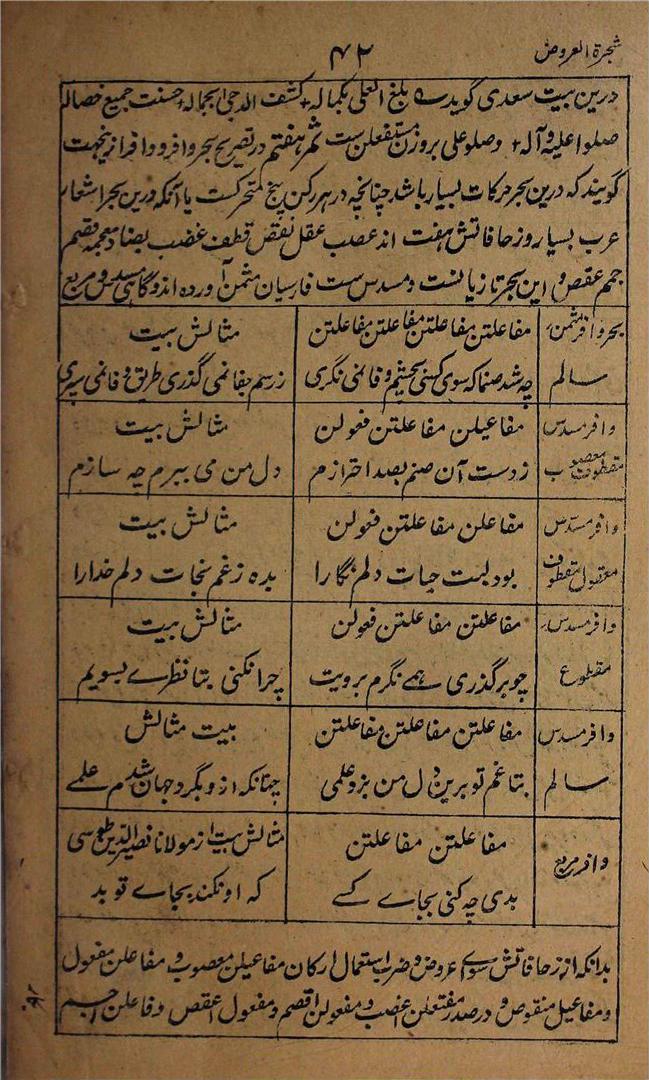 شجرة العروض
۴۲
درین بیت سعدی گوید ے بلغ العلی بکماله + کشف الدجی بجماله + حسنت جمیع خصاله
صلوا علیه و آله + وصلو علی بروزن مستفعلن ست ثمر هفتم در تصریح بحر وافر و وافر ازینجهت
گویند که درین بحر حرکات بسیار باشد چنانچه در هر رکن پنج متحرکست یا آنکه درین بحر اشعار
عرب بسیار و زحافاتش هفت اند عصب عقل نقص قطف عضب بضاد معجمه قصم
جمم عقص و این بحر تازیانست و مسدس ست فارسیان مثمن آورده اند و گاهی مسدس و مربع
بحر وافر مثمن
سالم
مفاعلتن مفاعلتن مفاعلتن مفاعلتن
چه شد صنما که سوی کسی بچشم وفا نمی نگری
مثالش بیت
ز رسم جفا نمی گذری طریق وفا نمی سپری
وافر مسدس
معصوب مقطوف
مفاعیلن مفاعلتن فعولن
ز دست آن صنم بصد احترازم
مثالش بیت
دل من می ببرم چه سازم
وافر مسدس
معقول مقطوف
مفاعلن مفاعلتن فعولن
بود لبت حیات دلم نگارا
مثالش بیت
بده ز غم نجات دلم خدارا
وافر مسدس
مقطوع
مفاعلتن مفاعلتن فعولن
چو بر گذری همے نگرم برویت
مثالش بیت
چرا نکنی بتا نظرے بسویم
وافر مسدس
سالم
مفاعلتن مفاعلتن مفاعلتن
بتا غم تو برین دل من بزد علمی
بیت مثالش
چنانکه ازو بگرد جهان شدم علمے
وافر مربع
مفاعلتن مفاعلتن
بدی چه کنی بجاے کسے
مثالش بیت از مولانا نصیر الدین طوسی
که او نکند بجاے تو بد
بدانکه از زحافاتش سوے عروض و ضرب استعمال ارکان مفاعیلن معصوب و مفاعلن معقول
و مفاعیل منقوص و در صدر مفتعلن اعضب و مفعولن اقصم و مفعول اعقص و فاعلن اجم